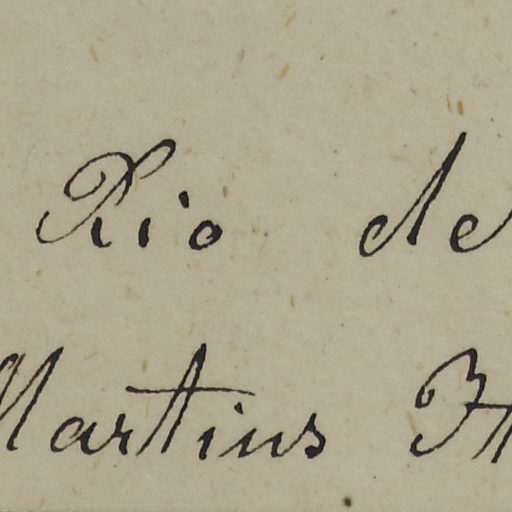 Rio de
Martins